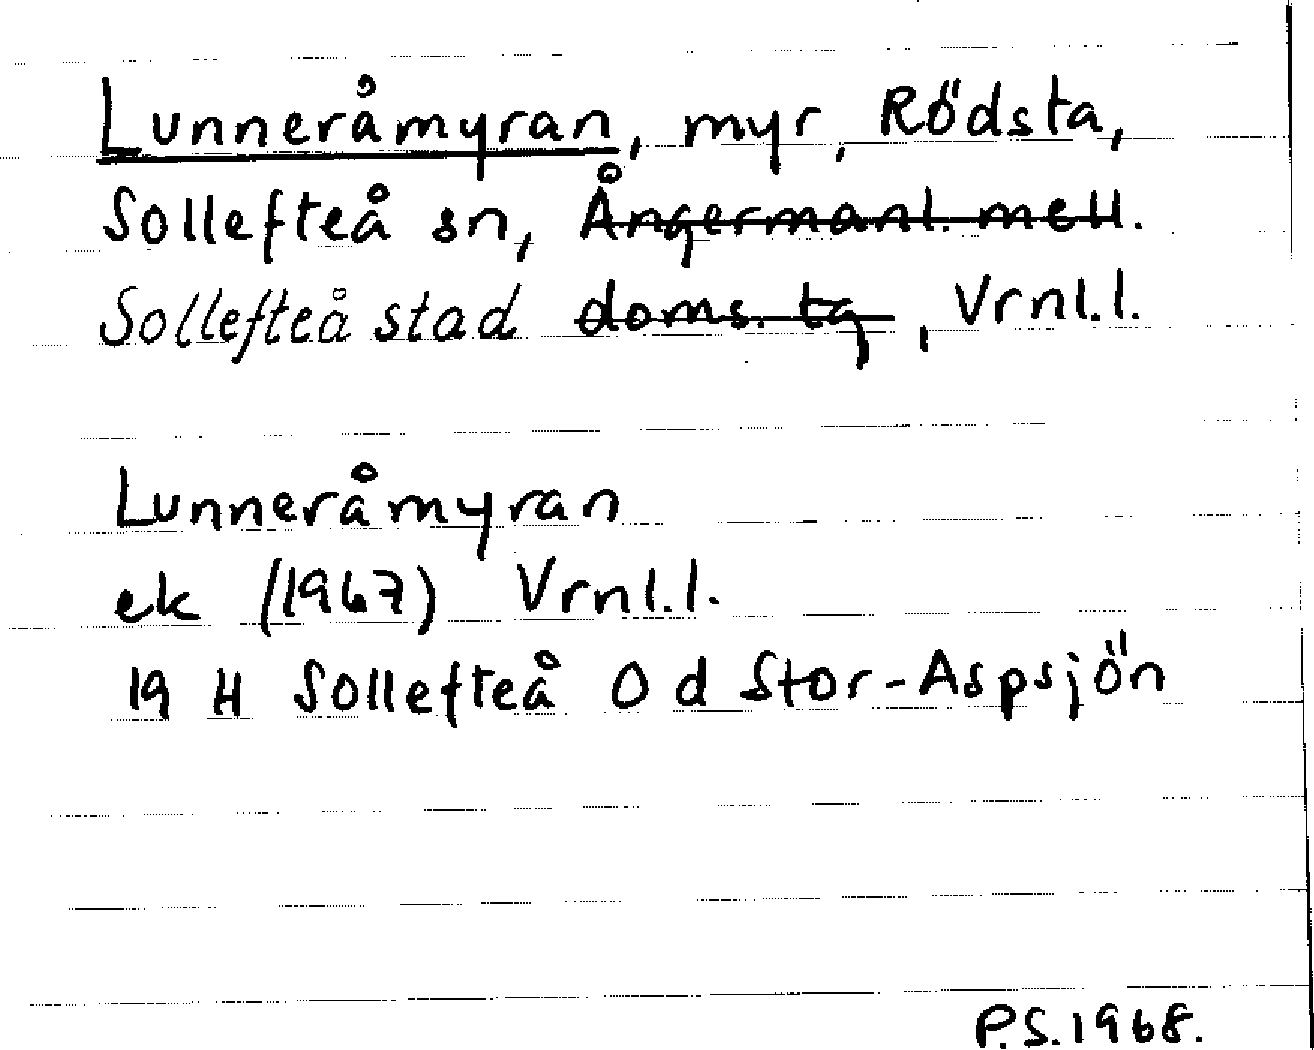 Lunneråmyran, myr, Rödsta,
Sollefteå sn, Ångermanl. mell.
Sollefteå stad doms. tg, Vrnl.l.
Lunneråmyran
ek (1967) Vrnl.l.
19 H Sollefteå O d Stor-Aspsjön
P.S.1968.